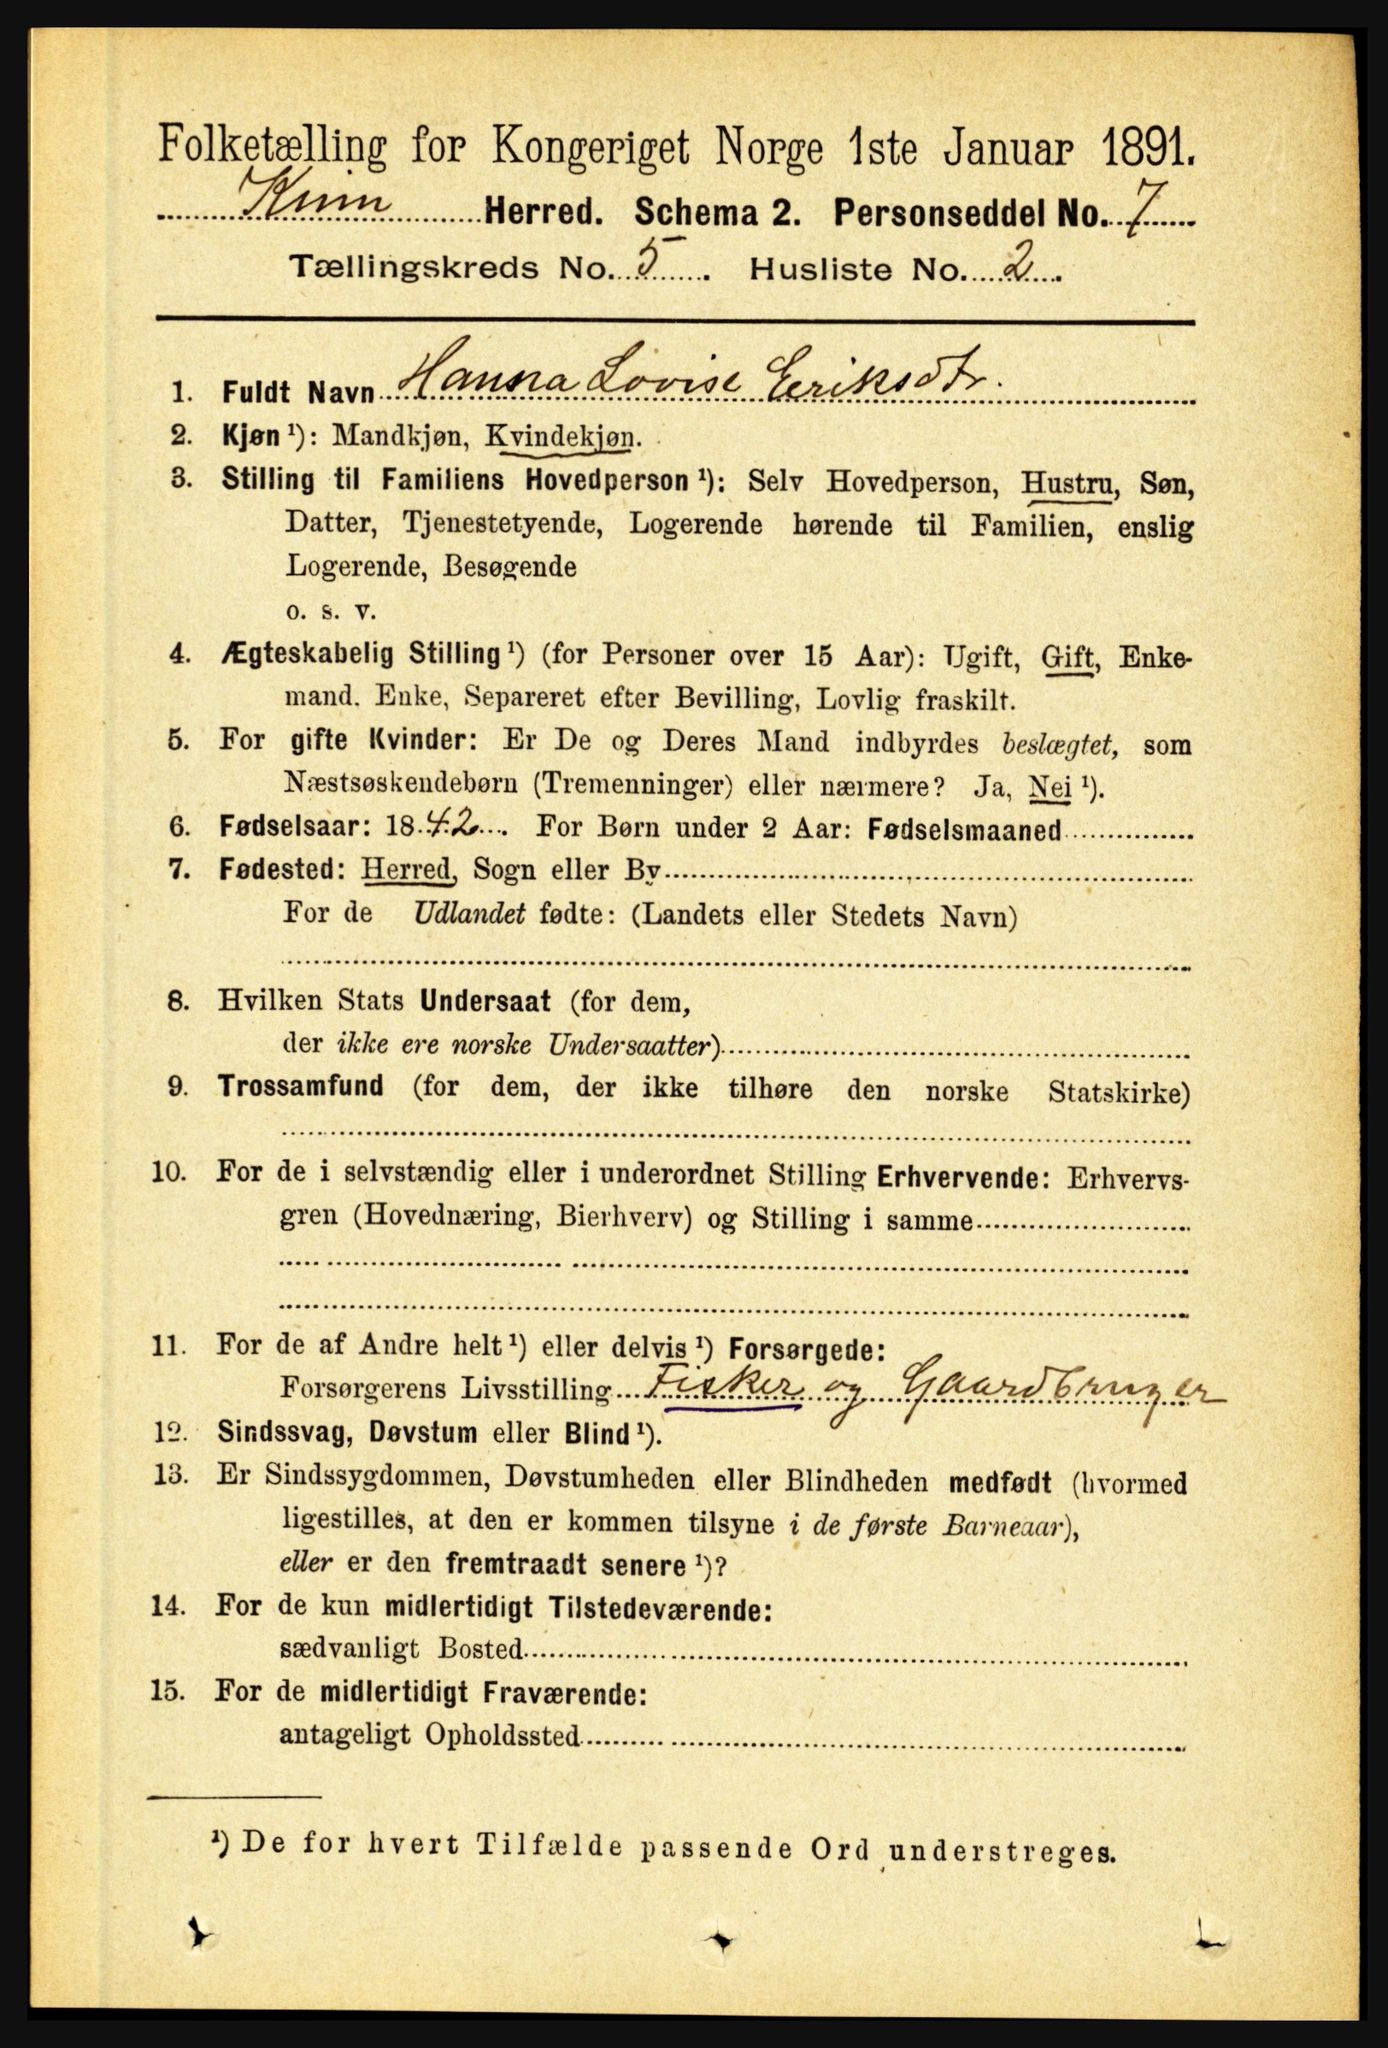 Folketælling for Kongeriget Norge 1ste Januar 1891.
Kinn Herred. Schema 2. Personseddel No. 7
Tællingskreds No. 5. Husliste No. 2.
1. Fuldt Navn Hanna Lovise Eriksdtr.
2. Kjøn ¹): Mandkjøn, Kvindekjøn.
3. Stilling til Familiens Hovedperson ¹): Selv Hovedperson, Hustru, Søn,
Datter, Tjenestetyende, Logerende hørende til Familien, enslig
Logerende, Besøgende
o. s. v.
4. Ægteskabelig Stilling ¹) (for Personer over 15 Aar): Ugift, Gift, Enke-
mand. Enke, Separeret efter Bevilling, Lovlig fraskilt.
5. For gifte Kvinder: Er De og Deres Mand indbyrdes beslægtet, som
Næstsøskendebørn (Tremenninger) eller nærmere? Ja, Nei ¹).
6. Fødselsaar: 1842. For Børn under 2 Aar: Fødselsmaaned
7. Fødested: Herred, Sogn eller By
For de Udlandet fødte: (Landets eller Stedets Navn)
8. Hvilken Stats Undersaat (for dem,
der ikke ere norske Undersaatter)
9. Trossamfund (for dem, der ikke tilhøre den norske Statskirke)
10. For de i selvstændig eller i underordnet Stilling Erhvervende: Erhvervs-
gren (Hovednæring, Bierhverv) og Stilling i samme
11. For de af Andre helt ¹) eller delvis ¹) Forsørgede:
Forsørgerens Livsstilling Fisker og Gaardbruger
12. Sindssvag, Døvstum eller Blind ¹).
13. Er Sindssygdommen, Døvstumheden eller Blindheden medfødt (hvormed
ligestilles, at den er kommen tilsyne i de første Barneaar),
eller er den fremtraadt senere ¹)?
14. For de kun midlertidigt Tilstedeværende:
sædvanligt Bosted
15. For de midlertidigt Fraværende:
antageligt Opholdssted
¹) De for hvert Tilfælde passende Ord understreges.